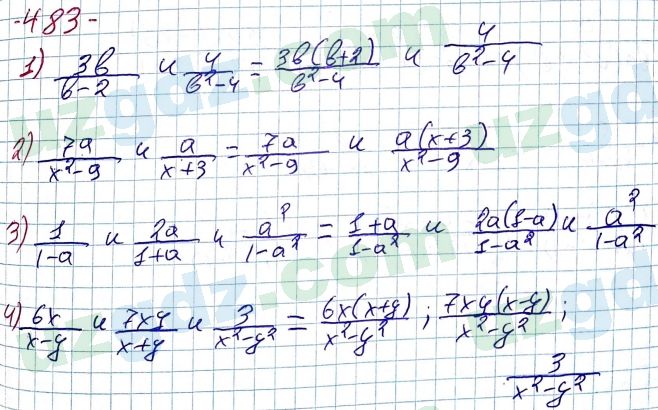 -483-
1) 3b/(b-2) и 4/(b²-4) = 3b(b+2)/(b²-4) и 4/(b²-4)
2) 7a/(x²-9) и a/(x+3) = 7a/(x²-9) и a(x+3)/(x²-9)
3) 1/(1-a) и 2a/(1+a) и a²/(1-a²) = (1+a)/(1-a²) и 2a(1-a)/(1-a²) и a²/(1-a²)
4) 6x/(x-y) и 7xy/(x+y) и 3/(x²-y²) = 6x(x+y)/(x²-y²) ; 7xy(x-y)/(x²-y²) ;
3/(x²-y²)
uzgdz.com